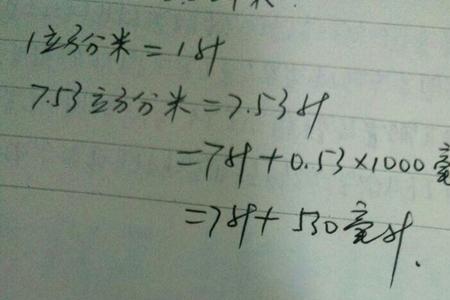 1立方分米=1升
7.53立方分米=7.53升
=7升+0.53×1000毫
=7升+530毫升.